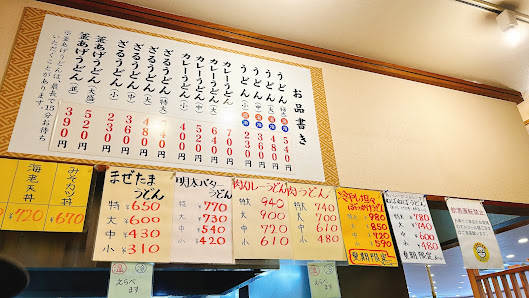 お品書き
うどん 特大 540
うどん (大)
うどん (中)
うどん (小)
カレーうどん
カレーうどん
カレーうどん (小)
ざるうどん 特大
ざるうどん (大) 480
ざるうどん (中) 360
ざるうどん (小) 260
釜あげうどん (大盛) 520
釜あげうどん (並) 390
※釜あげうどんは、最長で15分お待ち
いただくことがあります。
みそカツ丼
¥670
海老天丼
¥720
まぜたま
うどん
特 ¥650
大 ¥600
中 ¥430
小 ¥310
温 冷
えらべ
ます
明太バター
うどん
特 ¥770
大 ¥730
中 ¥540
小 ¥420
肉カレーうどん
特大 940
大 900
中 720
小 610
肉うどん
特大 740
大 700
中 610
小 480
温 冷
えらべ
ます
冷やし坦々
ぶっかけうどん
特大 980
大 850
中 720
小 590
夏期限定
特大 ¥780
大 ¥740
中 ¥600
小 ¥480
夏期限定
飲酒運転禁止